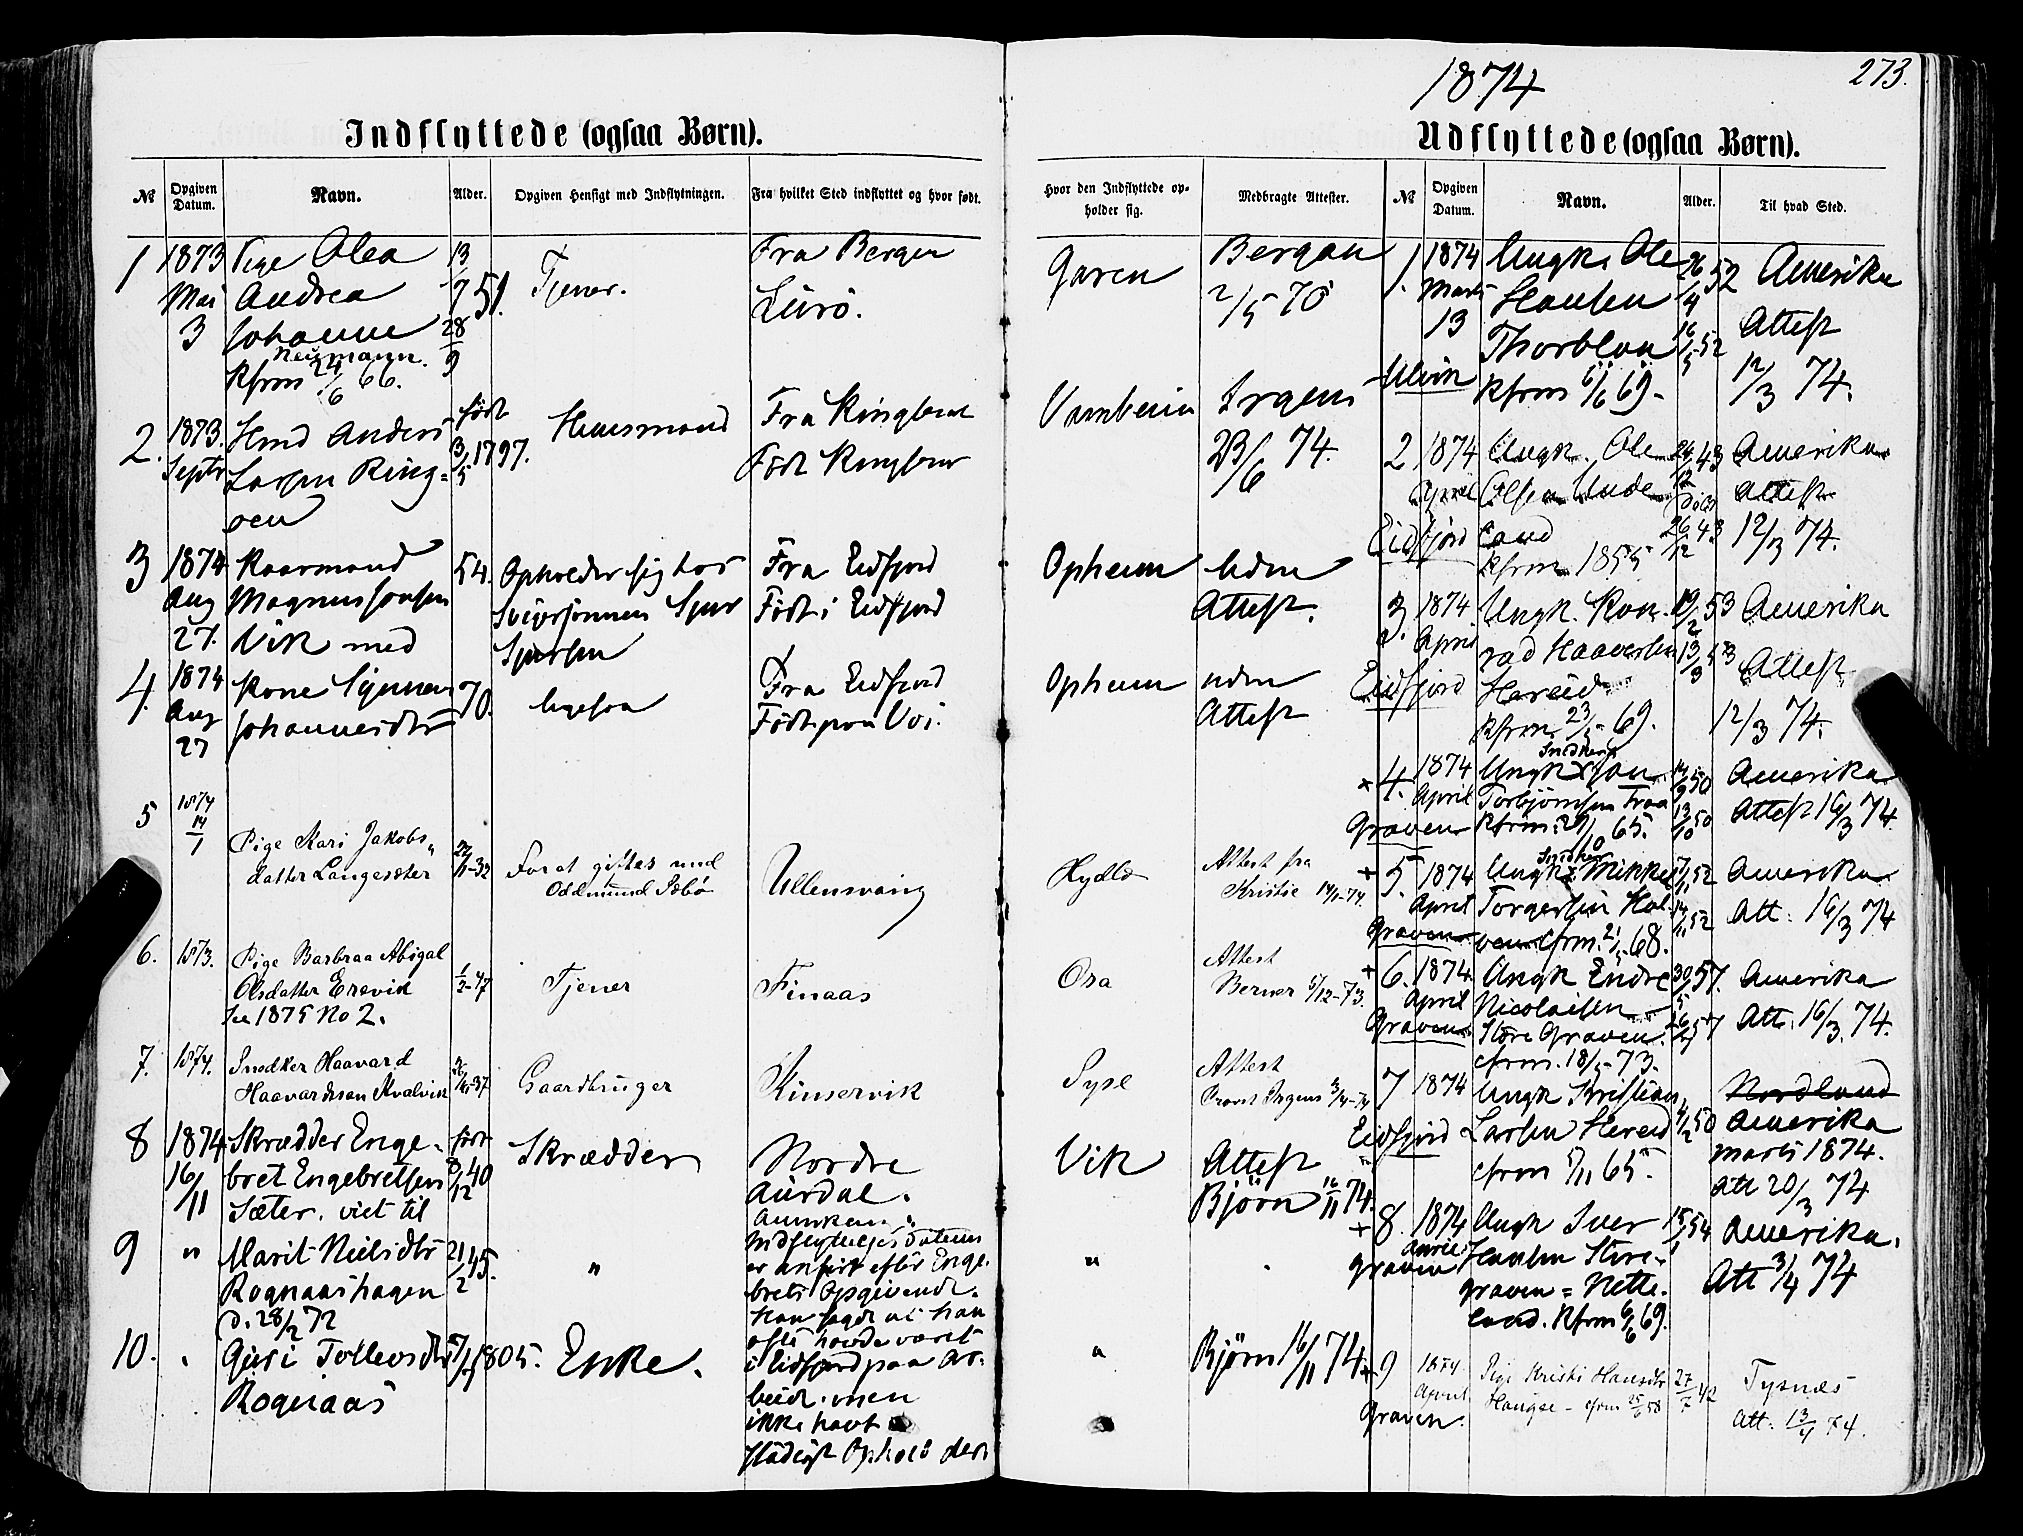 1874
273.
Indflyttede (ogsaa Børn).
Udflyttede (ogsaa Børn).
№
Opgiven Datum.
Navn.
Alder.
Opgiven Hensigt med Indflytningen.
Fra hvilket Sted indflyttet og hvor født.
Hvor den Indflyttede opholder sig.
Medbragte Attester.
№
Opgiven Datum.
Navn.
Alder.
Til hvad Sted.
1
1873
Mai
3
Pige Olea
Andrea
Johanne
Neumann.
Kfrm 24/6 66.
13/7 51.
28/9
Tjener.
Fra Bergen
Lurö.
Garen
Bergen
2/5 70
2.
1873.
Septr
Hmd Anders
Larsen Ring=
oen
født
3/5 1797.
Huusmand
Fra Ringoen
Født Ringoen
Vambeim
Irgens
23/6 74.
3
1874
Aug
27.
Kaarmand
Magnus Jonsen
Vik med
54.
Opholder sig hos
Svigersønnen Sjur
Sjursen
Fra Eidfjord
Født i Eidfjord
Opheim
uden
Attest.
4.
1874
Aug
27
Kone Synneva
Johannesdtr
70.
ligesaa
Fra Eidfjord
Født paa Voi.
Opheim
uden
Attest
5
1874
14/1
Pige Kari Jakobs„
datter Langesæter
22/11-32
For at giftes med
Oddmund Isbø
Ullensvang
Hydle
Attest fra
Kristie 14/1-74.
6.
1873.
Pige Barbraa Abigal
Olsdatter Ersvik
Se 1875 No 2.
1/2-47
Tjener
Finaas
Osa
Attest
Berner 6/12-73.
7.
1874.
Snedker Haavard
Haavardsson Kvalvik
Gaardbruger
Kinservik
Syse
Attest
Provst Irgens 3/4-74
8
1874
16/11
Skrædder Enge-
bret Engebretsen
Sæter. viet til
født
8/12 40
Skrædder
Nordre
Aurdal.
Vik
Attest
Björn 16/11 74.
9
"
Marit Nielsdtr
Rognaashagen
d. 28/2 72
21/2 45.
"
Anmærkn.:
Indflytnings Datum
er anført efter Enge-
brets Opgivende.
Han sagde at han
ofte havde været
i Eidfjord paa Ar-
beid. men
ikke havt
stadigt Ophold der.
"
10.
Guri Tollevsdtr
Rognaas
1805.
Enke.
"
Björn 16/11 74
1.
1874
Marts
13
Ulvik
Ungk. Ole
Hansen
Thorblaa
Kfrm 6/6 69.
26/4 52
16/5 52
Amerika
Attest
12/3 74.
2
1874
April
Eidfjord
Ungk. Ole
Olsen Unde-
land
Kfrm 1855
24/12 43
Døbt
26/12 43
Amerika
Attest
12/3 74.
3.
1874
April
Eidfjord
Ungk. Kon-
rad Haaversen
Hereid
Kfrm. 23/5 69.
19/2 53
13/3 53
Amerika
Attest
12/3 74.
+ 4.
1874
April
Graven
Snedker
Ungk Jon
Torbjørnsen Traa
Kfrm: 29/10 65.
14/9 50
13/10 50
Amerika
Attest 16/3 74.
+ 5.
1874
April
Graven
Snedker
Ungk Mikkel
Torgersen Hal-
ven cfrm. 21/5 68.
7/11 52
Amerika
Att: 16/3 74
+ 6.
1874
April
Graven
Ungk Endre
Nicolaisen
Store Graven.
cfrm. 18/5-73.
30/5 57.
Amerika
Att: 16/3. 74.
7
1874
Eidfjord
Ungk Kristian
Larsen Hereid
cfrm 5/11 65.
4/2 50
Nordland
Amerika
Marts 1874.
Att 20/3 74
+ 8.
1874
April
Graven
Ungk Iver
Hansen Store-
graven = Nette-
land. Kfrm 6/6 69.
15/1 54
Amerika.
Att 3/4 74
+ 9
1874
April
Graven.
Pige Kristi Hansdtr
Haugse - cfrm 25/6 58
27/7 42
Tysnæs
Att: 13/4 74.